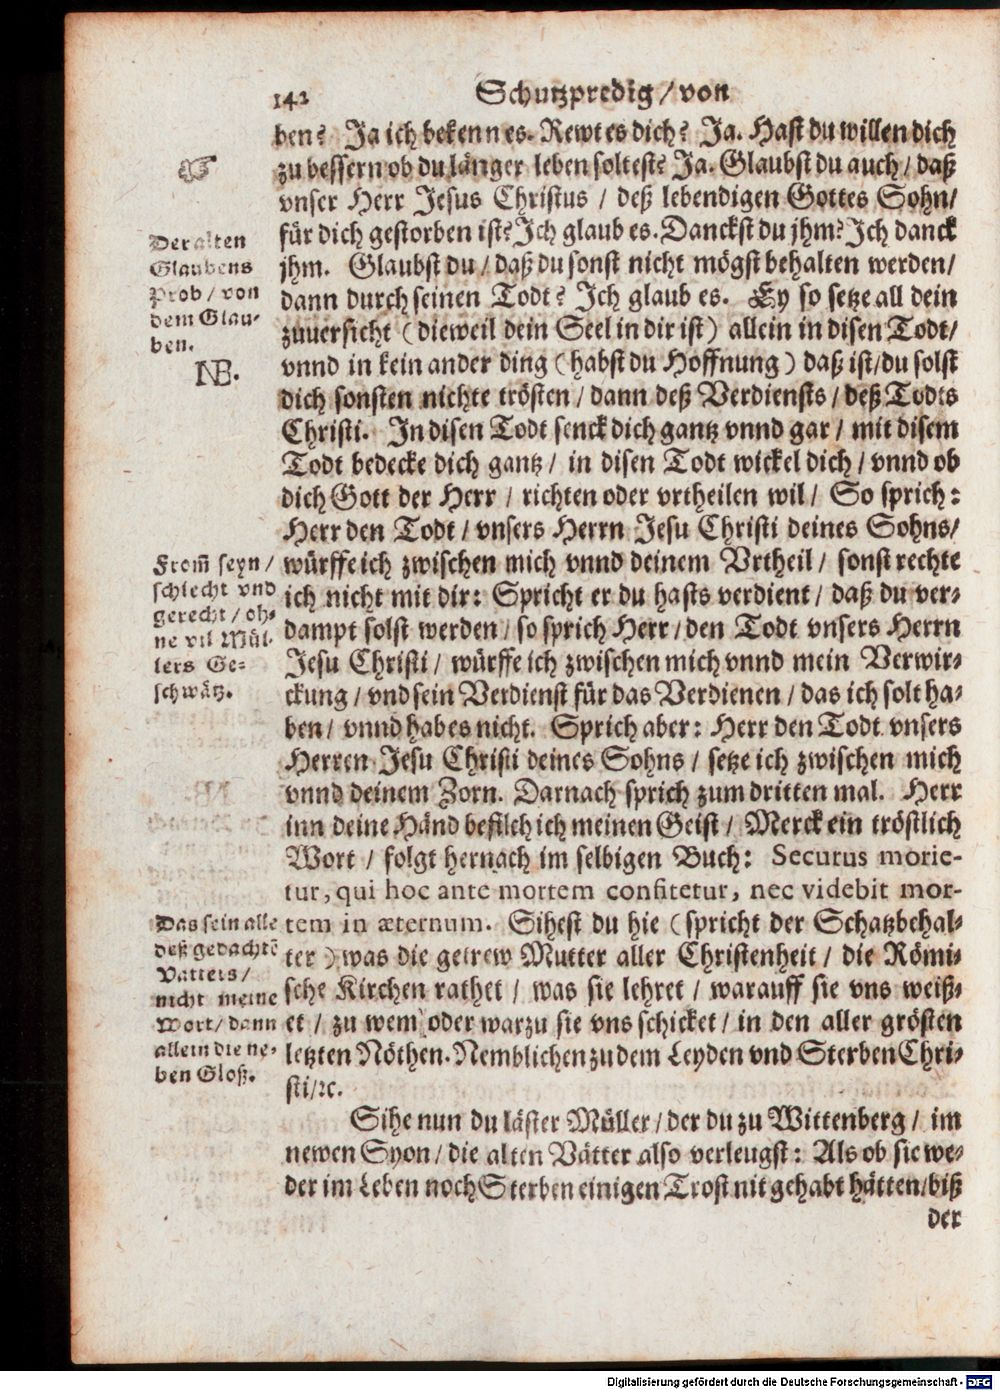 142
Schutzpredig / von
ben? Ja ich bekenn es. Rewt es dich? Ja. Hast du willen dich
zu bessern ob du länger leben soltest? Ja. Glaubst du auch / daß
vnser Herr Jesus Christus / deß lebendigen Gottes Sohn /
für dich gestorben ist? Ich glaub es. Danckst du jhm? Ich danck
jhm. Glaubst du / daß du sonst nicht mögst behalten werden /
dann durch seinen Todt? Ich glaub es. Ey so setze all dein
zuuersicht (dieweil dein Seel in dir ist) allein in disen Todt /
vnnd in kein ander ding (habst du Hoffnung) daß ist / du solst
dich sonsten nichte trösten / dann deß Verdiensts / deß Todts
Christi. In disen Todt senck dich gantz vnnd gar / mit disem
Todt bedecke dich gantz / in disen Todt wickel dich / vnnd ob
dich Gott der Herr / richten oder vrtheilen wil / So sprich:
Herr den Todt / vnsers Herrn Jesu Christi deines Sohns /
würffe ich zwischen mich vnnd deinem Vrtheil / sonst rechte
ich nicht mit dir: Spricht er du hasts verdient / daß du ver-
dampt solst werden / so sprich Herr / den Todt vnsers Herrn
Jesu Christi / würffe ich zwischen mich vnnd mein Verwir-
ckung / vnd sein Verdienst für das Verdienen / das ich solt ha-
ben / vnnd hab es nicht. Sprich aber: Herr den Todt vnsers
Herren Jesu Christi deines Sohns / setze ich zwischen mich
vnnd deinem Zorn. Darnach sprich zum dritten mal. Herr
inn deine Händ befilch ich meinen Geist / Merck ein tröstlich
Wort / folgt hernach im selbigen Buch: Securus morie-
tur, qui hoc ante mortem confitetur, nec videbit mor-
tem in æternum. Sihest du hie (spricht der Schatzbehal-
ter) was die getrew Mutter aller Christenheit / die Römi-
sche Kirchen rathet / was sie lehret / warauff sie vns weiß-
et / zu wem oder warzu sie vns schicket / in den aller grösten
letzten Nöthen. Nemblichen zu dem Leyden vnd Sterben Chri-
sti / ꝛc.
Sihe nun du läster Müller / der du zu Wittenberg / im
newen Syon / die alten Vätter also verleugst: Als ob sie we-
der im Leben noch Sterben einigen Trost nit gehabt hätten / biß
der
☞
Der alten
Glaubens
Prob / von
dem Glau-
ben.
NB.
From̃ seyn /
schlecht vnd
gerecht / oh-
ne vil Mül-
lers Ge-
schwätz.
Das sein alle
deß gedachtẽ
Vatters /
nicht meine
Wort / dann
allein die ne-
ben Gloß.
Digitalisierung gefördert durch die Deutsche Forschungsgemeinschaft - DFG